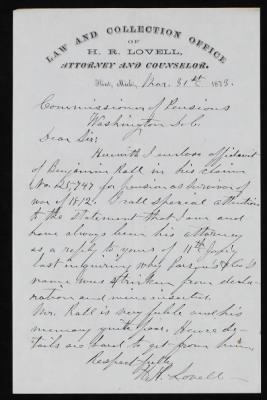 LAW AND COLLECTION OFFICE
OF
H. R. LOVELL,
ATTORNEY AND COUNSELOR.
Flint, Mich., Mar. 31st 1873.
Commissioner of Pensions
Washington D.C.
Dear Sir:
Herewith I enclose affidavit
of Benjamin Rall in his claim
No. 125,747 for pension as survivor of
war of 1812. I call special attention
to the statement that I am and
have always been his Attorney
as a reply to yours of 11th
last inquiring why
name was stricken from decla-
ration and mine inserted.
Mr. Rall is very feeble and his
memory quite poor. Hence de-
tails are hard to get from him
Respectfully
H. R. Lovell